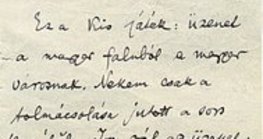 Ez a Kis játék: üzenet
a magyar faluból a magyar
városnak. Nekem csak a
tolmácsolása jutott a sors